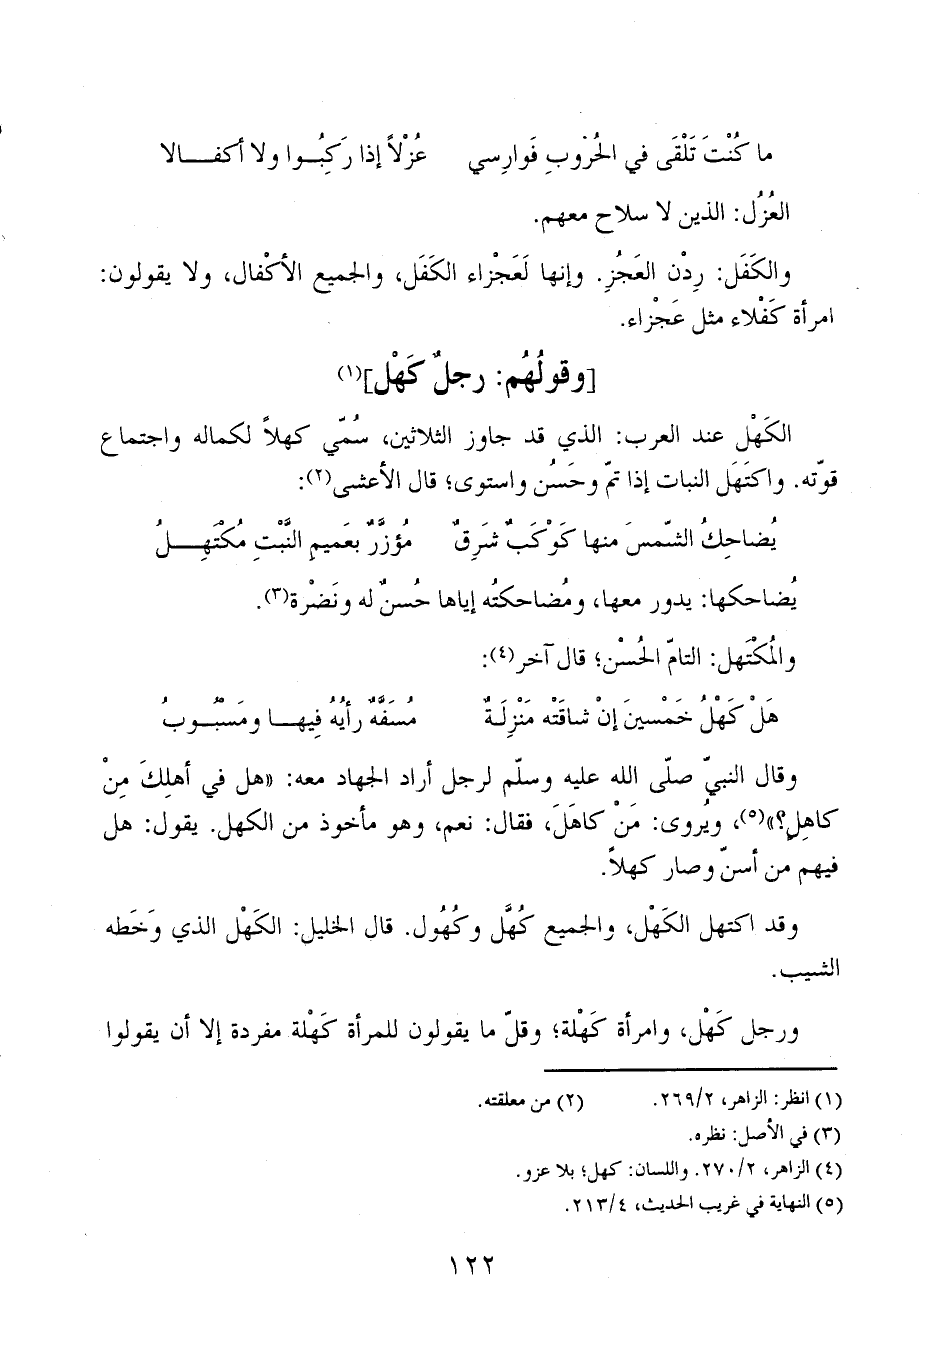 ما كُنْتَ تَلْقَى في الحُرُوبِ فَوارِسي عُزْلاً إذا رَكِبُــوا ولا أكفــــالا
العُزُل: الذين لا سلاح معهم.
والكَفَل: رِدْن العَجُزِ. وإنها لَعَجْزاء الكَفَل، والجميع الأكْفال، ولا يقولون:
امرأة كَفْلاء مثل عَجْزاء.
[وقولُهُم: رجلٌ كَهْل](١)
الكَهْل عند العرب: الذي قد جاوز الثلاثين، سُمّي كهلاً لكماله واجتماع
قوّته. واكتَهَلَ النبات إذا تمّ وحَسُن واستوى؛ قال الأعشى(٢):
يُضاحِكُ الشّمسَ منها كَوْكَبٌ شَرِقٌ مُؤزَّرٌ بعَميمِ النَّبْتِ مُكْتَهِــــلُ
يُضاحكها: يدور معها، ومُضاحكتُه إياها حُسنٌ له ونَضْرة(٣).
والمُكْتَهل: التامّ الحُسْن؛ قال آخر(٤):
هَلْ كَهْلُ خَمْسينَ إنْ شاقَتْه مَنْزِلَـةٌ مُسَفَّهٌ رأيُهُ فِيهــا ومَسْبُــوبُ
وقال النبيّ صلّى الله عليه وسلّم لرجل أراد الجهاد معه: «هل في أهلِكَ مِنْ
كاهِلٍ؟»(٥)، ويُروى: مَنْ كاهَلَ، فقال: نعم، وهو مأخوذ من الكهل. يقول: هل
فيهم من أسنّ وصار كهلاً.
وقد اكتهل الكَهْل، والجميع كُهَّل وكُهُول. قال الخليل: الكَهْل الذي وَخَطه
الشيب.
ورجل كَهْل، وامرأة كَهْلة؛ وقلّ ما يقولون للمرأة كَهْلة مفردة إلا أن يقولوا
(١) انظر: الزاهر، ٢٦٩/٢. (٢) من معلقته.
(٣) في الأصل: نظره.
(٤) الزاهر، ٢٧٠/٢. واللسان: كهل؛ بلا عزو.
(٥) النهاية في غريب الحديث، ٢١٣/٤.
١٢٢